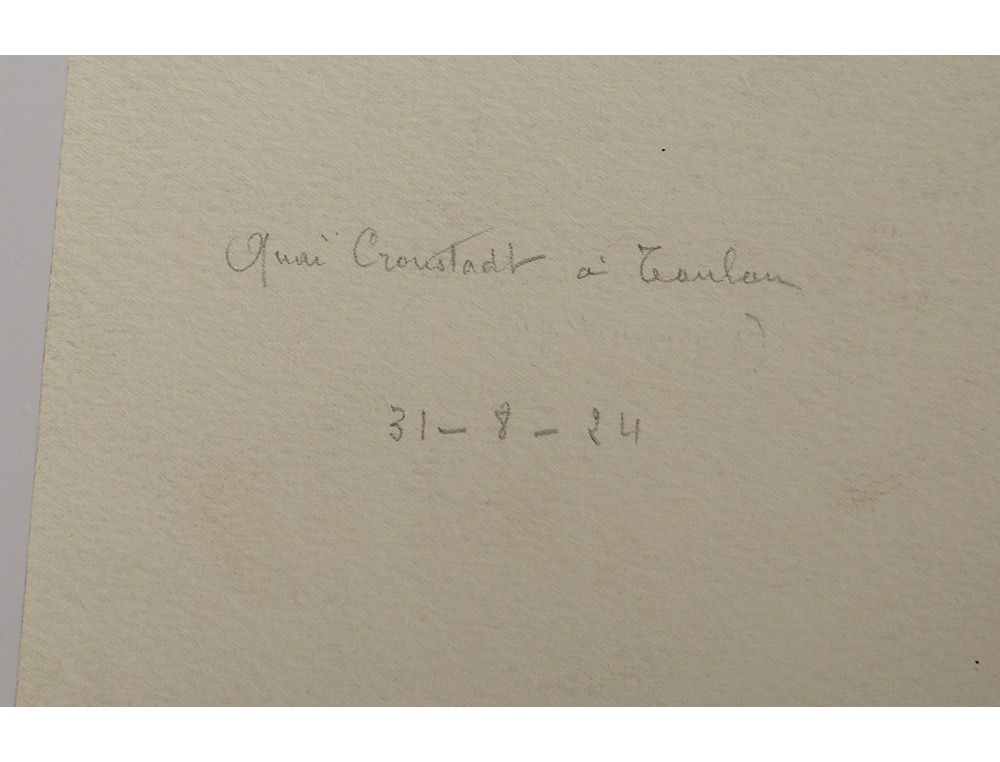 Quai Cronstadt à Toulon
31 - 8 - 24